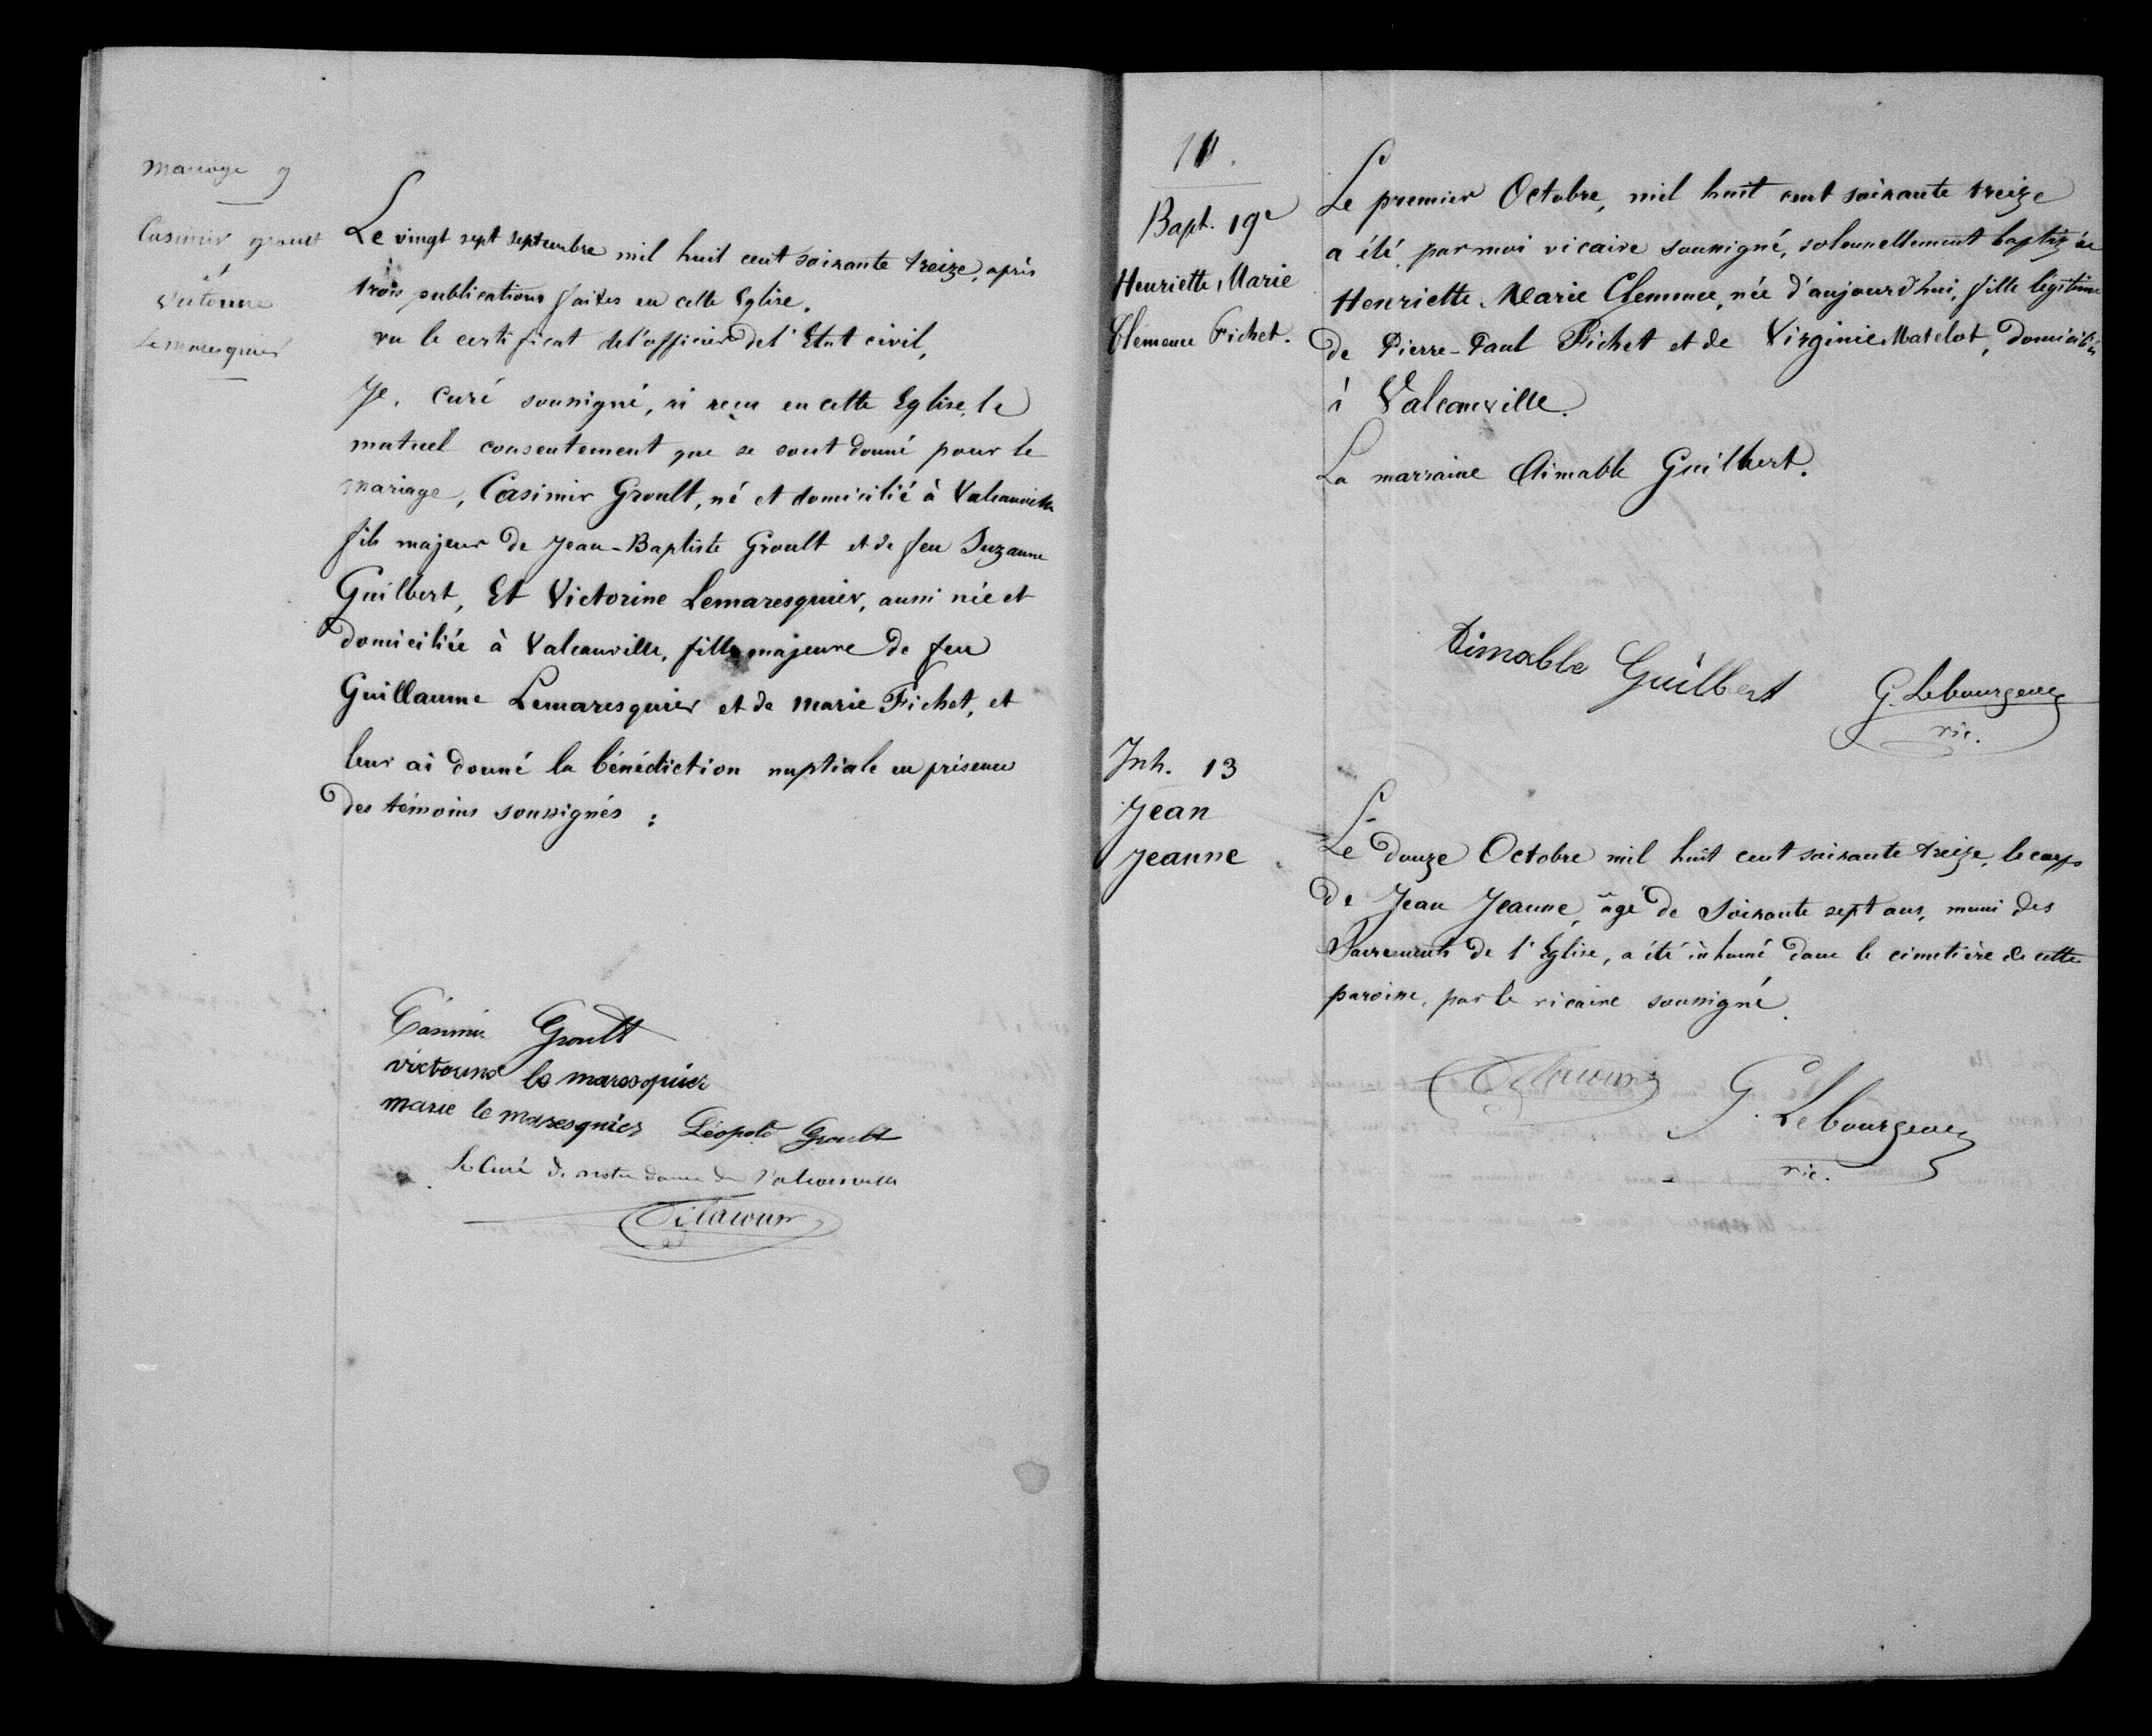 Mariage 9
Casimir groult
et
Victorine
Lemaresquier
Le vingt sept septembre mil huit cent soixante treize, après
trois publications faites en cette Eglise,
vu le certificat de l'officier de l'Etat civil,
Je, curé soussigné, ai reçu en cette Eglise, le
mutuel consentement que se sont donné pour le
mariage, Casimir Groult, né et domicilié à Valcanville
fils majeur de Jean-Baptiste Groult et de feu Suzanne
Guilbert, Et Victorine Lemaresquier, aussi née et
domiciliée à Valcanville, fille majeure de feu
Guillaume Lemaresquier et de Marie Fichet, et
leur ai donné la bénédiction nuptiale en présence
des témoins soussignés :
Casimir Groult
victorine le maresquier
marie le maresquier Léopold Groult
Le Curé de notre dame de Valcanville
Delacour
10.
Bapt. 19e
Henriette, Marie
Clémence Fichet.
Le premier Octobre, mil huit cent soixante treize
a été, par moi vicaire soussigné, solennellement baptizée
Henriette Marie Clemence, née d'aujourd'hui, fille légitime
de Pierre-Paul Fichet et de Virginie Matelot, domiciliés
à Valcanville.
La marraine Aimable Guilbert.
Aimable Guilbert
G. Lebourgeois
vic.
Inh. 13
Jean
Jeanne
Le douze Octobre mil huit cent soixante treize, le corps
de Jean Jeanne, âgé de soixante sept ans, muni des
Sacrements de l'Eglise, a été inhumé dans le cimetière de cette
paroisse, par le vicaire soussigné.
Delacour
G. Lebourgeois
vic.